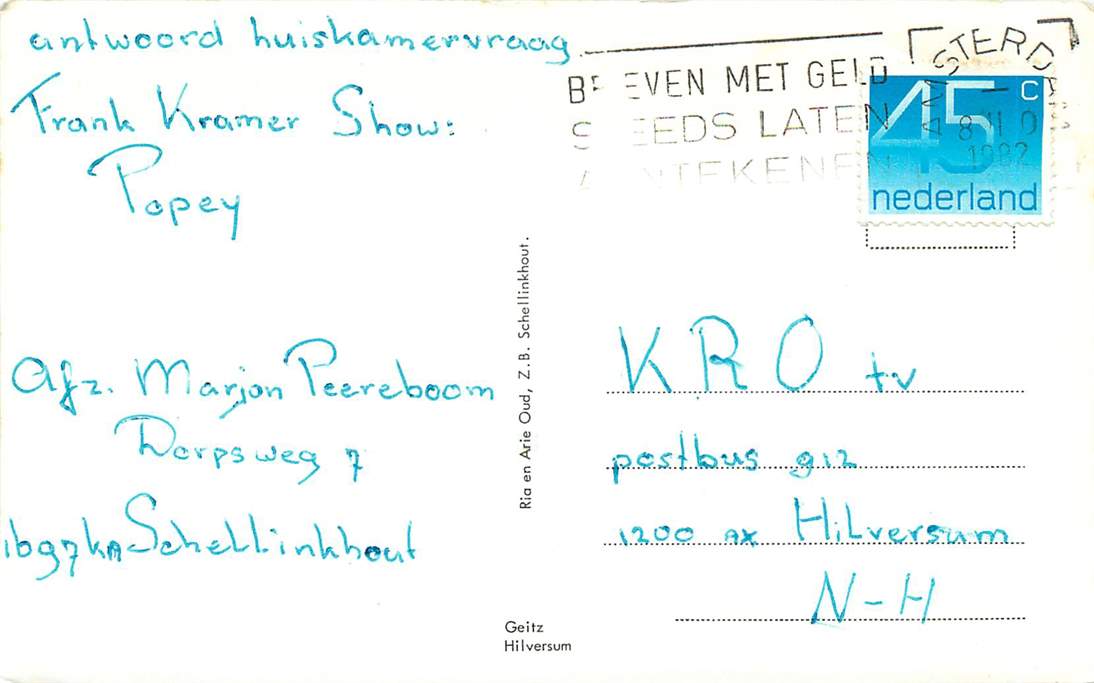 antwoord huiskamervraag
Frank Kramer Show:
Popey
Afz. Marjon Peereboom
Dorpsweg 7
1697KA Schellinkhout
Ria en Arie Oud, Z.B. Schellinkhout.
Geitz
Hilversum
BRIEVEN MET GELD
STEEDS LATEN
AANTEKENEN
AMSTERDAM
1982
45 c
nederland
KRO tv
postbus 912
1200 AX Hilversum
N-H